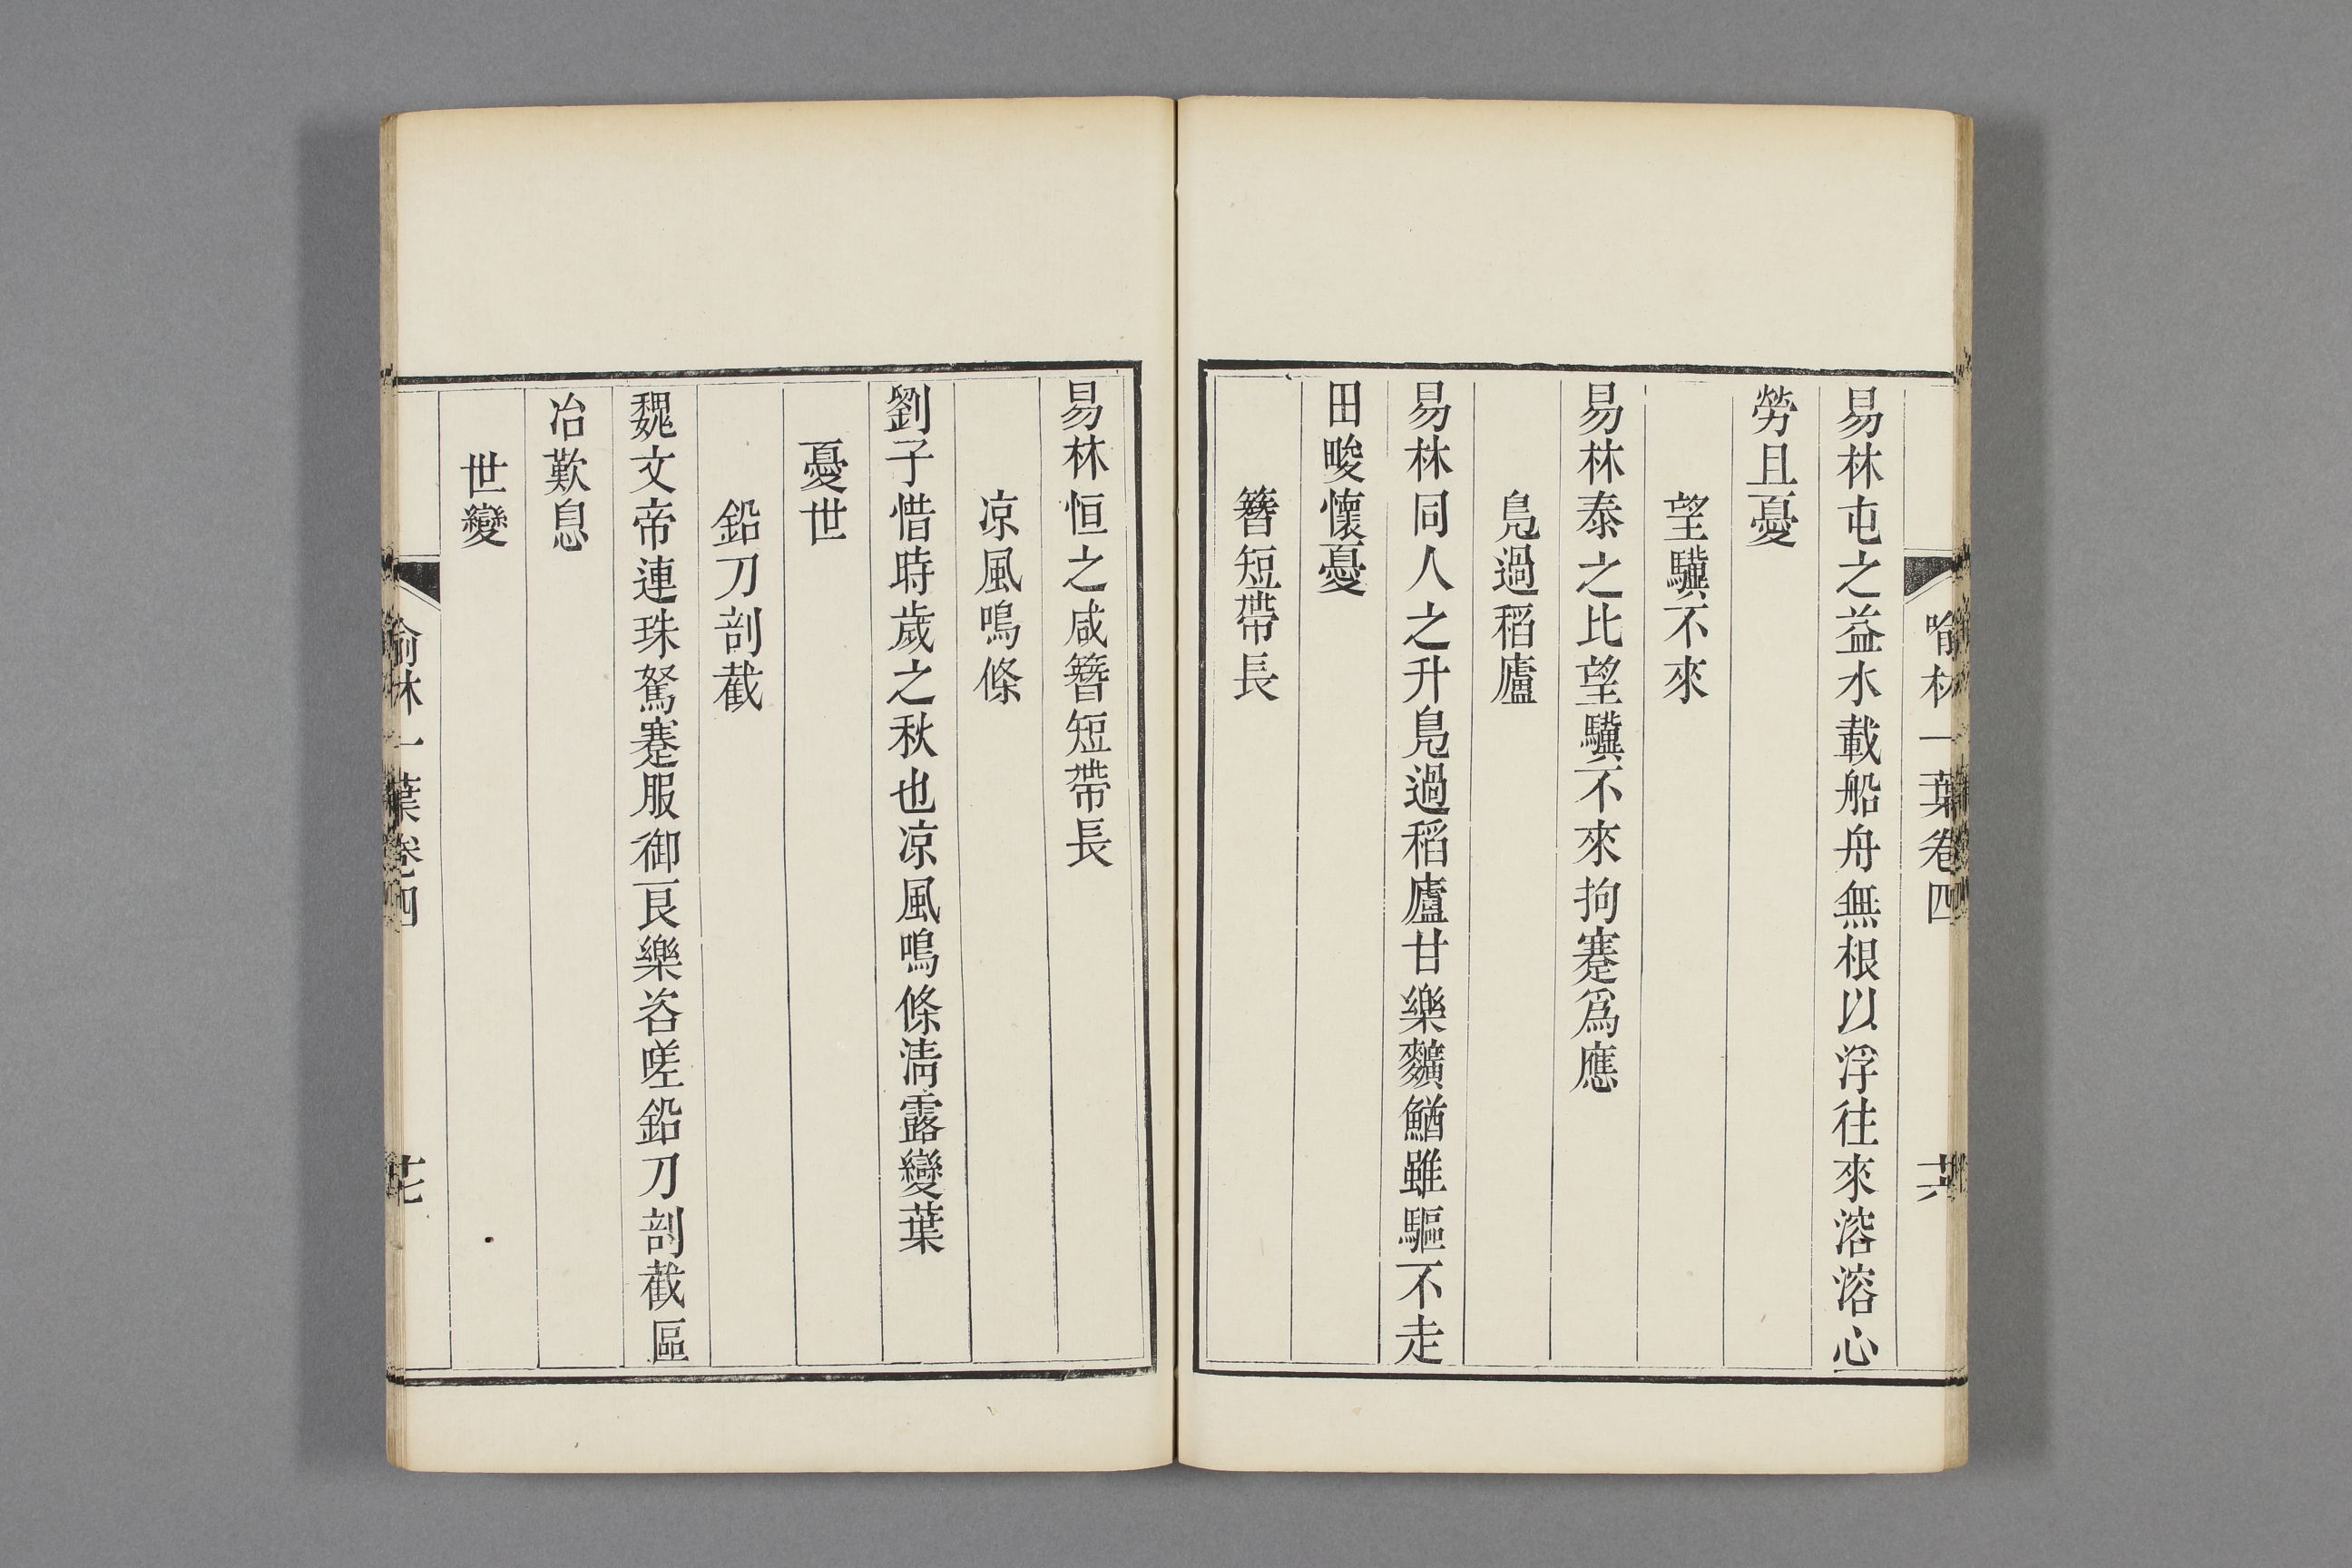 喻林一葉卷四
易林屯之益水載船舟無根以浮往來溶溶心
勞且憂
望驥不來
易林泰之比望驥不來拘蹇爲應
鳧過稻廬
易林同人之升鳧過稻廬甘樂䵃鰌雖驅不走
田畯懷憂
簪短帶長
易林恒之咸簪短帶長
凉風鳴條
劉子惜時歲之秋也凉風鳴條淸露變葉
憂世
鉛刀剖截
魏文帝連珠駑蹇服御良樂咨嗟鉛刀剖截區
冶歎息
世變
喻林一葉卷四